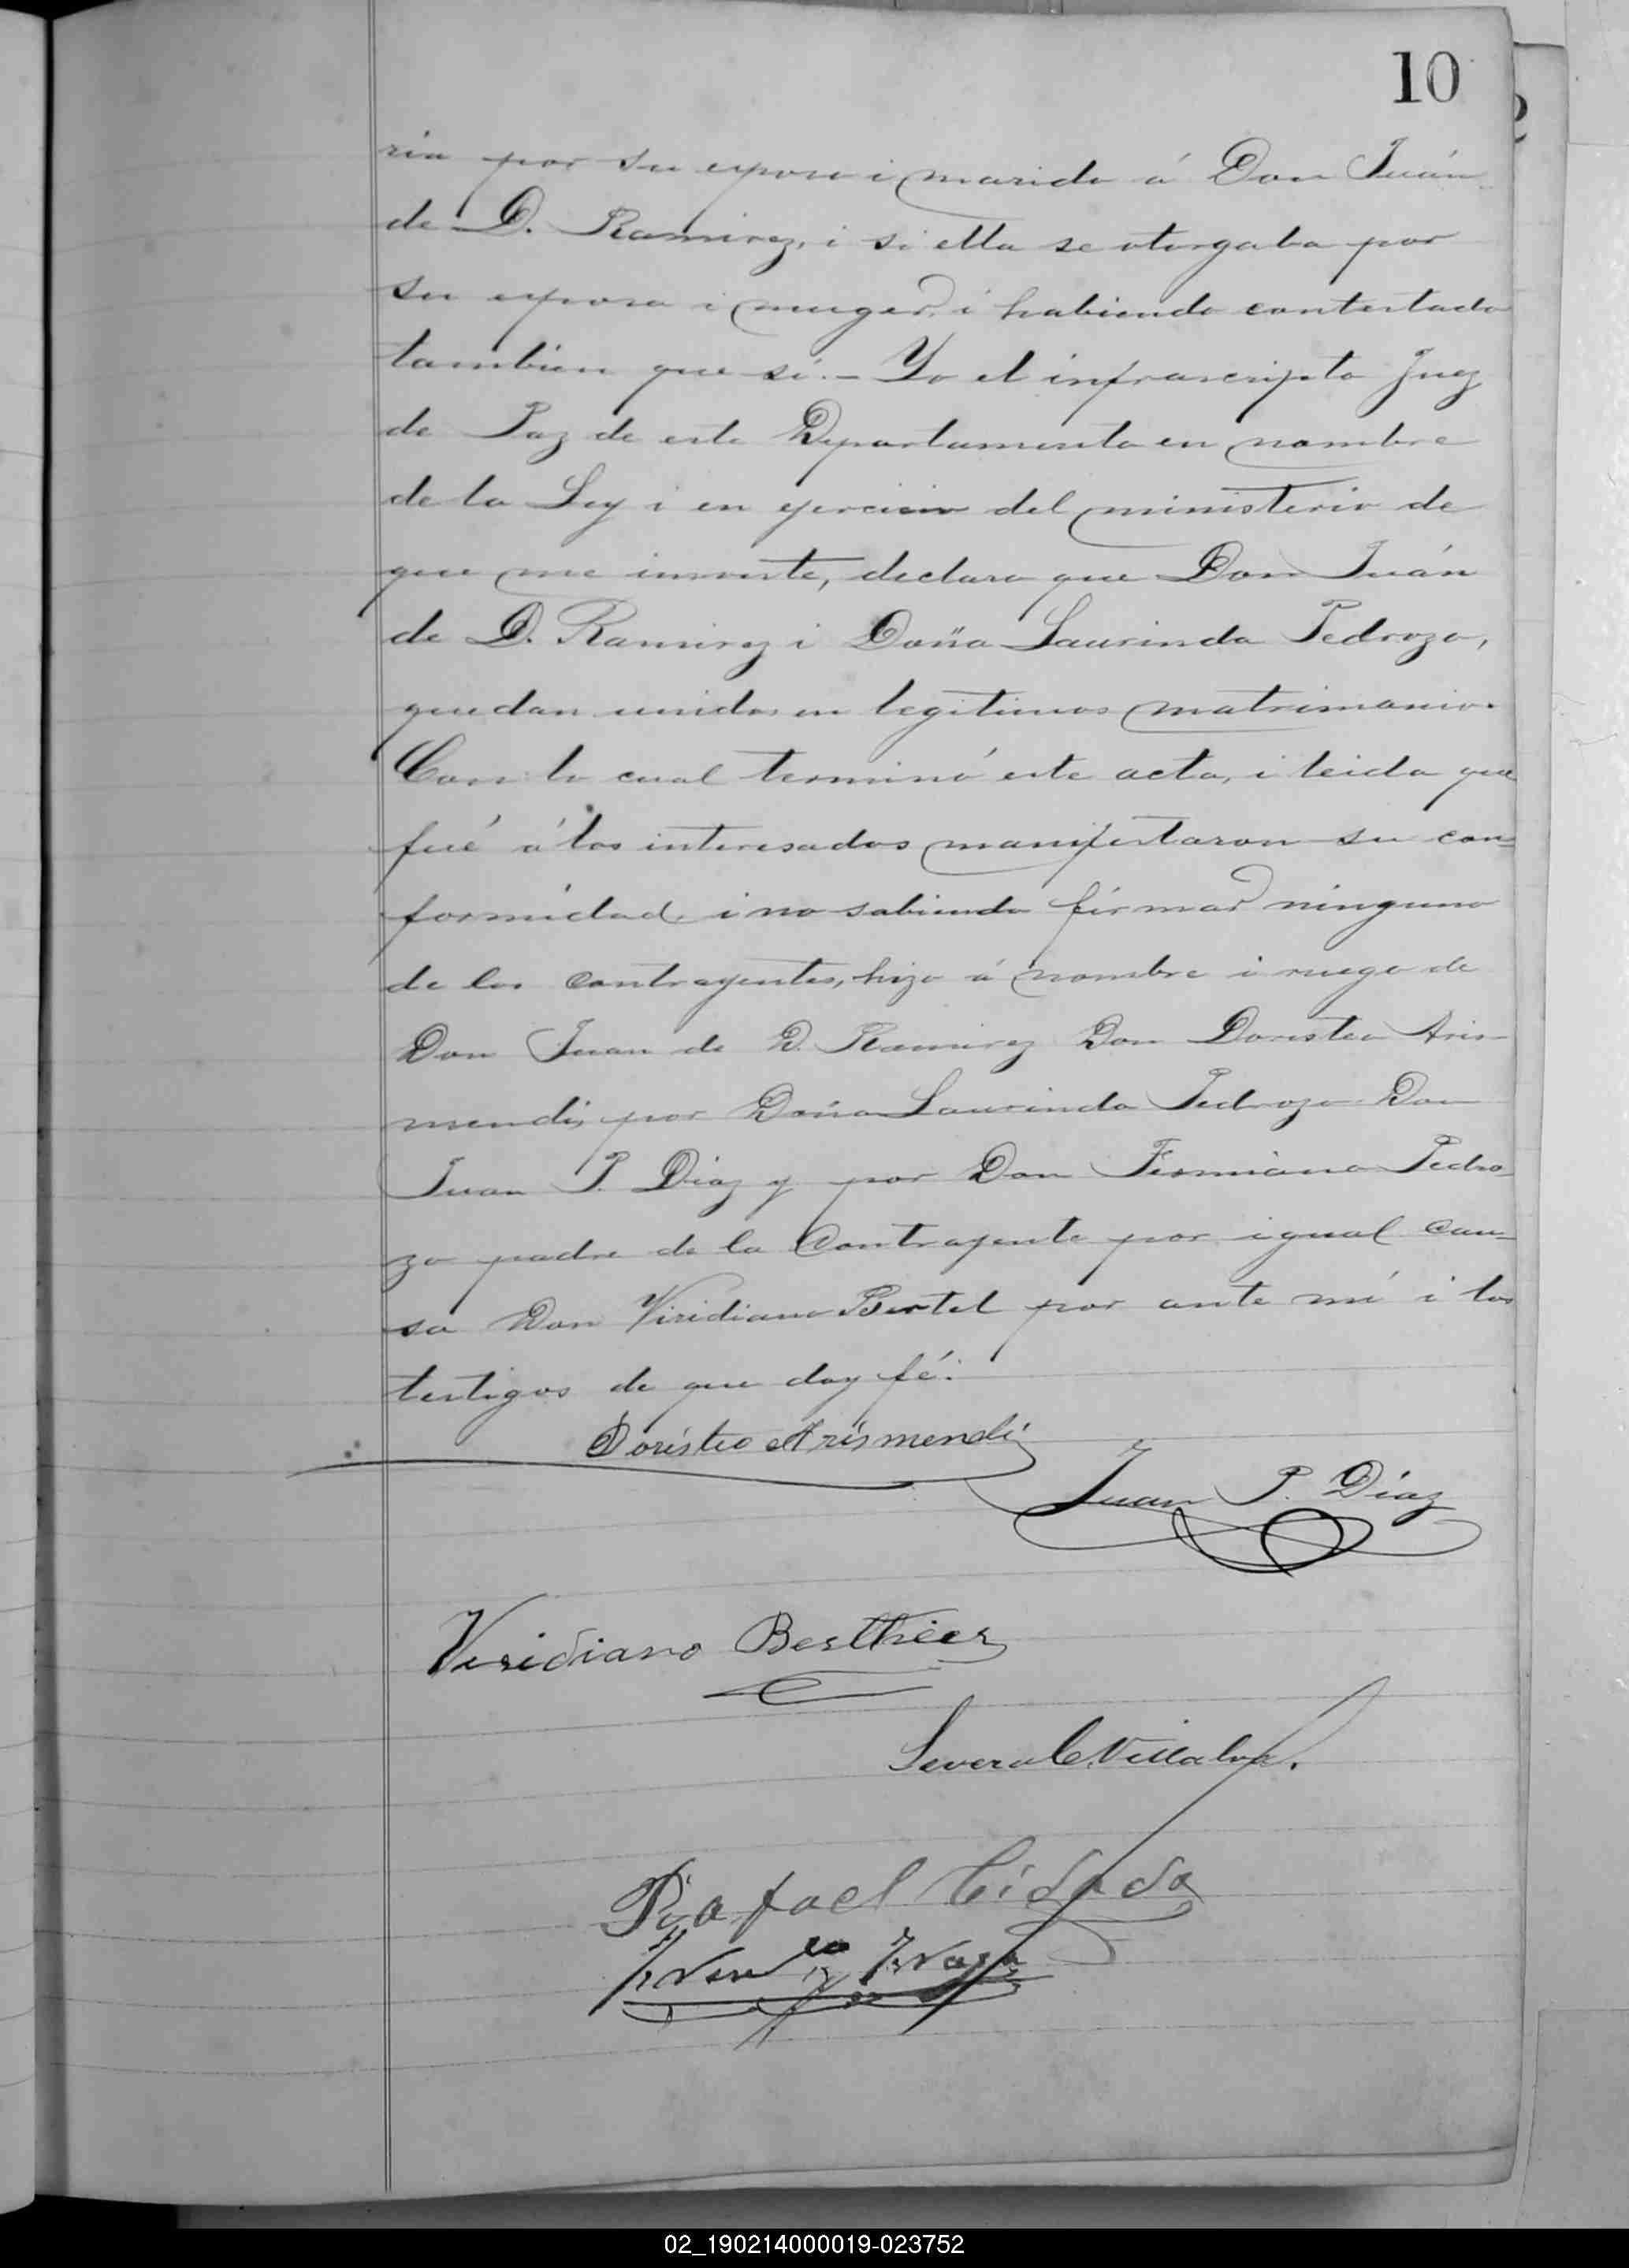 10
ria por su esposo i marido á Don Juán
de D. Ramirez, i si ella se otorgaba por
su esposa i muger, i habiendo contestado
tambien que si.- Yo el infrascripto Juez
de Paz de este Departamento en nombre
de la Ley i en ejercicio del ministerio de
que me inviste, declaro que Don Juán
de D. Ramirez i Doña Laurinda Pedrozo,
quedan unidos en legitimos matrimonio.
Con lo cual terminó este acta, i leida que
fué á los interesados manifestaron su con=
formidad i no sabiendo firmar ninguno
de los contrayentes, hizo á nombre i ruego de
Don Juan de D. Ramirez Don Doristeo Aris-
mendi, por Doña Laurinda Pedrozo Don
Juan P. Diaz y por Don Firmiano Pedro-
zo padre de la Contrayente por igual cau=
sa Don Viridiano Bertel por ante mi i los
testigos de que doy fé.
Doristeo Arismendi
Juan P. Diaz
Viridiano Berthier
Severo C. Villalva.
Rafael
02_190214000019-023752